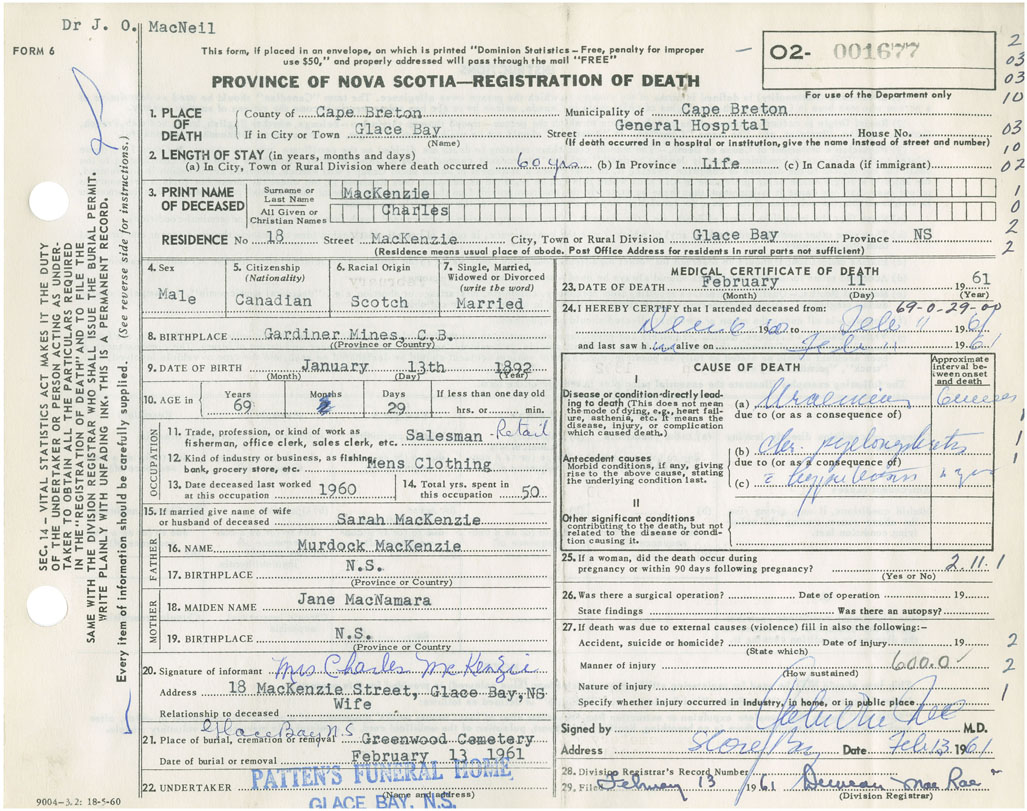 Dr J. O. MacNeil
FORM 6
This form, if placed in an envelope, on which is printed "Dominion Statistics—Free, penalty for improper
use $50," and properly addressed will pass through the mail "FREE"
PROVINCE OF NOVA SCOTIA—REGISTRATION OF DEATH
02- 001677
For use of the Department only
1. PLACE OF DEATH
County of Cape Breton Municipality of Cape Breton
If in City or Town Glace Bay Street General Hospital House No.
(Name) (If death occurred in a hospital or institution, give the name instead of street and number)
2. LENGTH OF STAY (in years, months and days)
(a) In City, Town or Rural Division where death occurred 60 yrs (b) In Province Life (c) In Canada (if immigrant)
3. PRINT NAME OF DECEASED
Surname or Last Name MacKenzie
All Given or Christian Names Charles
RESIDENCE No 18 Street MacKenzie City, Town or Rural Division Glace Bay Province NS
(Residence means usual place of abode. Post Office Address for residents in rural parts not sufficient)
4. Sex
Male
5. Citizenship (Nationality)
Canadian
6. Racial Origin
Scotch
7. Single, Married, Widowed or Divorced (write the word)
Married
8. BIRTHPLACE Gardiner Mines, C.B.
(Province or Country)
9. DATE OF BIRTH January 13th 1892
(Month) (Day) (Year)
10. AGE in Years 69 Months Days 29 If less than one day old hrs. or min.
OCCUPATION
11. Trade, profession, or kind of work as fisherman, office clerk, sales clerk, etc. Salesman - Retail
12. Kind of industry or business, as fishing, bank, grocery store, etc. Mens Clothing
13. Date deceased last worked at this occupation 1960
14. Total yrs. spent in this occupation 50
15. If married give name of wife or husband of deceased Sarah MacKenzie
FATHER
16. NAME Murdock MacKenzie
17. BIRTHPLACE N.S.
(Province or Country)
MOTHER
18. MAIDEN NAME Jane MacNamara
19. BIRTHPLACE N.S.
(Province or Country)
20. Signature of informant Mrs Charles McKenzie
Address 18 MacKenzie Street, Glace Bay, NS
Relationship to deceased Wife
Glace Bay N.S
21. Place of burial, cremation or removal Greenwood Cemetery
Date of burial or removal February 13 1961
22. UNDERTAKER PATTEN'S FUNERAL HOME,
(Name and address)
GLACE BAY, N.S.
9004—3.2: 18-5-60
MEDICAL CERTIFICATE OF DEATH
23. DATE OF DEATH February 11 1961
(Month) (Day) (Year)
69-0-29-00
24. I HEREBY CERTIFY that I attended deceased from:
Dec 6 1960 to Feb 11 1961
and last saw him alive on Feb 11 1961
CAUSE OF DEATH
Approximate interval between onset and death
I
Disease or condition directly leading to death (This does not mean the mode of dying, e.g., heart failure, asthenia, etc. It means the disease, injury, or complication which caused death.)
(a) Uraemia
due to (or as a consequence of)
Antecedent causes
Morbid conditions, if any, giving rise to the above cause, stating the underlying condition last.
(b) chr pyelonephritis
due to (or as a consequence of)
(c)
II
Other significant conditions contributing to the death, but not related to the disease or condition causing it.
25. If a woman, did the death occur during pregnancy or within 90 days following pregnancy?
(Yes or No)
2.11.1
26. Was there a surgical operation? Date of operation 19
State findings Was there an autopsy?
27. If death was due to external causes (violence) fill in also the following:—
Accident, suicide or homicide? Date of injury 19
(State which)
Manner of injury 600.0
(How sustained)
Nature of injury
Specify whether injury occurred in industry, in home, or in public place
Signed by M.D.
Address Glace Bay Date Feb 13 1961
28. Division Registrar's Record Number
29. Filed February 13 1961 Duncan MacRae
(Division Registrar)
2
03
03
10
03
10
02
1
0
2
2
1
1
1
1
2
2
1
SEC. 14 — VITAL STATISTICS ACT MAKES IT THE DUTY
OF THE UNDERTAKER OR PERSON ACTING AS UNDER-
TAKER TO OBTAIN ALL THE PARTICULARS REQUIRED
IN THE "REGISTRATION OF DEATH" AND TO FILE THE
SAME WITH THE DIVISION REGISTRAR WHO SHALL ISSUE THE BURIAL PERMIT.
WRITE PLAINLY WITH UNFADING INK. THIS IS A PERMANENT RECORD.
Every item of information should be carefully supplied. (See reverse side for instructions.)